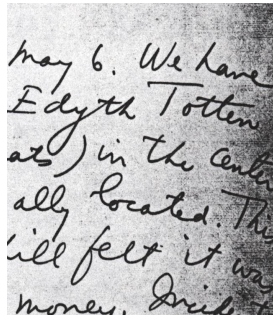 May 6. We have
Edyth Totten
ats) in the center
ally located. Th
ill felt it was
money. Incide